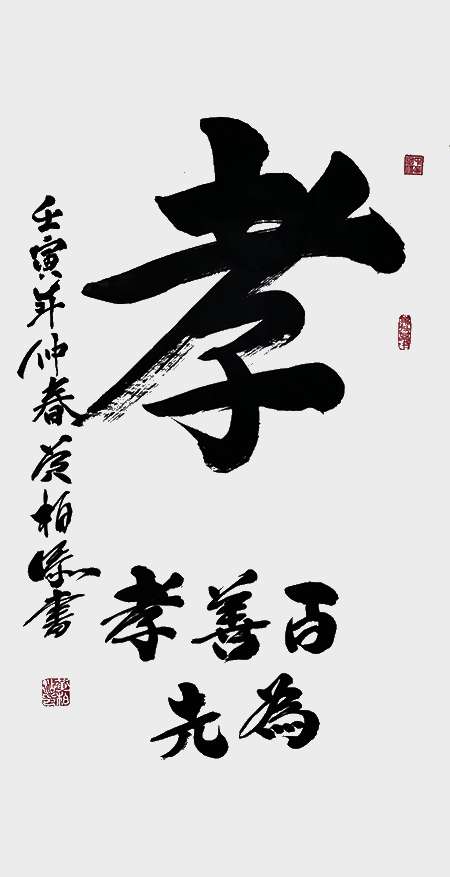 孝
百善孝
為先
壬寅年仲春柏書